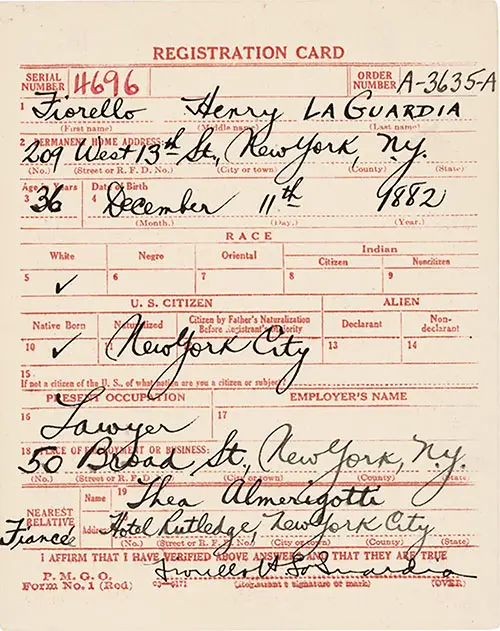 REGISTRATION CARD
SERIAL NUMBER 4696 ORDER NUMBER A-3635-A
1 Fiorello Henry LA GUARDIA
(First name) (Middle name) (Last name)
2 PERMANENT HOME ADDRESS:
209 West 13th St., New York, N.Y.
(No.) (Street or R. F. D. No.) (City or town) (County) (State)
Age in Years Date of Birth
3 36 4 December 11th 1882
(Month.) (Day.) (Year.)
RACE
White Negro Oriental Indian
Citizen Noncitizen
5 ✓ 6 7 8 9
U. S. CITIZEN ALIEN
Native Born Naturalized Citizen by Father's Naturalization Before Registrant's Majority Declarant Non-declarant
10 ✓ New York City 13 14
15
If not a citizen of the U. S., of what nation are you a citizen or subject?
PRESENT OCCUPATION EMPLOYER'S NAME
16 Lawyer 17
18 PLACE OF EMPLOYMENT OR BUSINESS:
50 Broad St., New York, N.Y.
(No.) (Street or R. F. D. No.) (City or town) (County) (State)
NEAREST RELATIVE Name 19 Thea Almerigotti
Fiancée Address Hotel Rutledge, New York City
(No.) (Street or R. F. D. No.) (City or town) (County) (State)
I AFFIRM THAT I HAVE VERIFIED ABOVE ANSWERS AND THAT THEY ARE TRUE
P. M. G. O.
Form No. 1 (Red) 03-6171 Fiorello H La Guardia
(Registrant's signature or mark) (OVER)